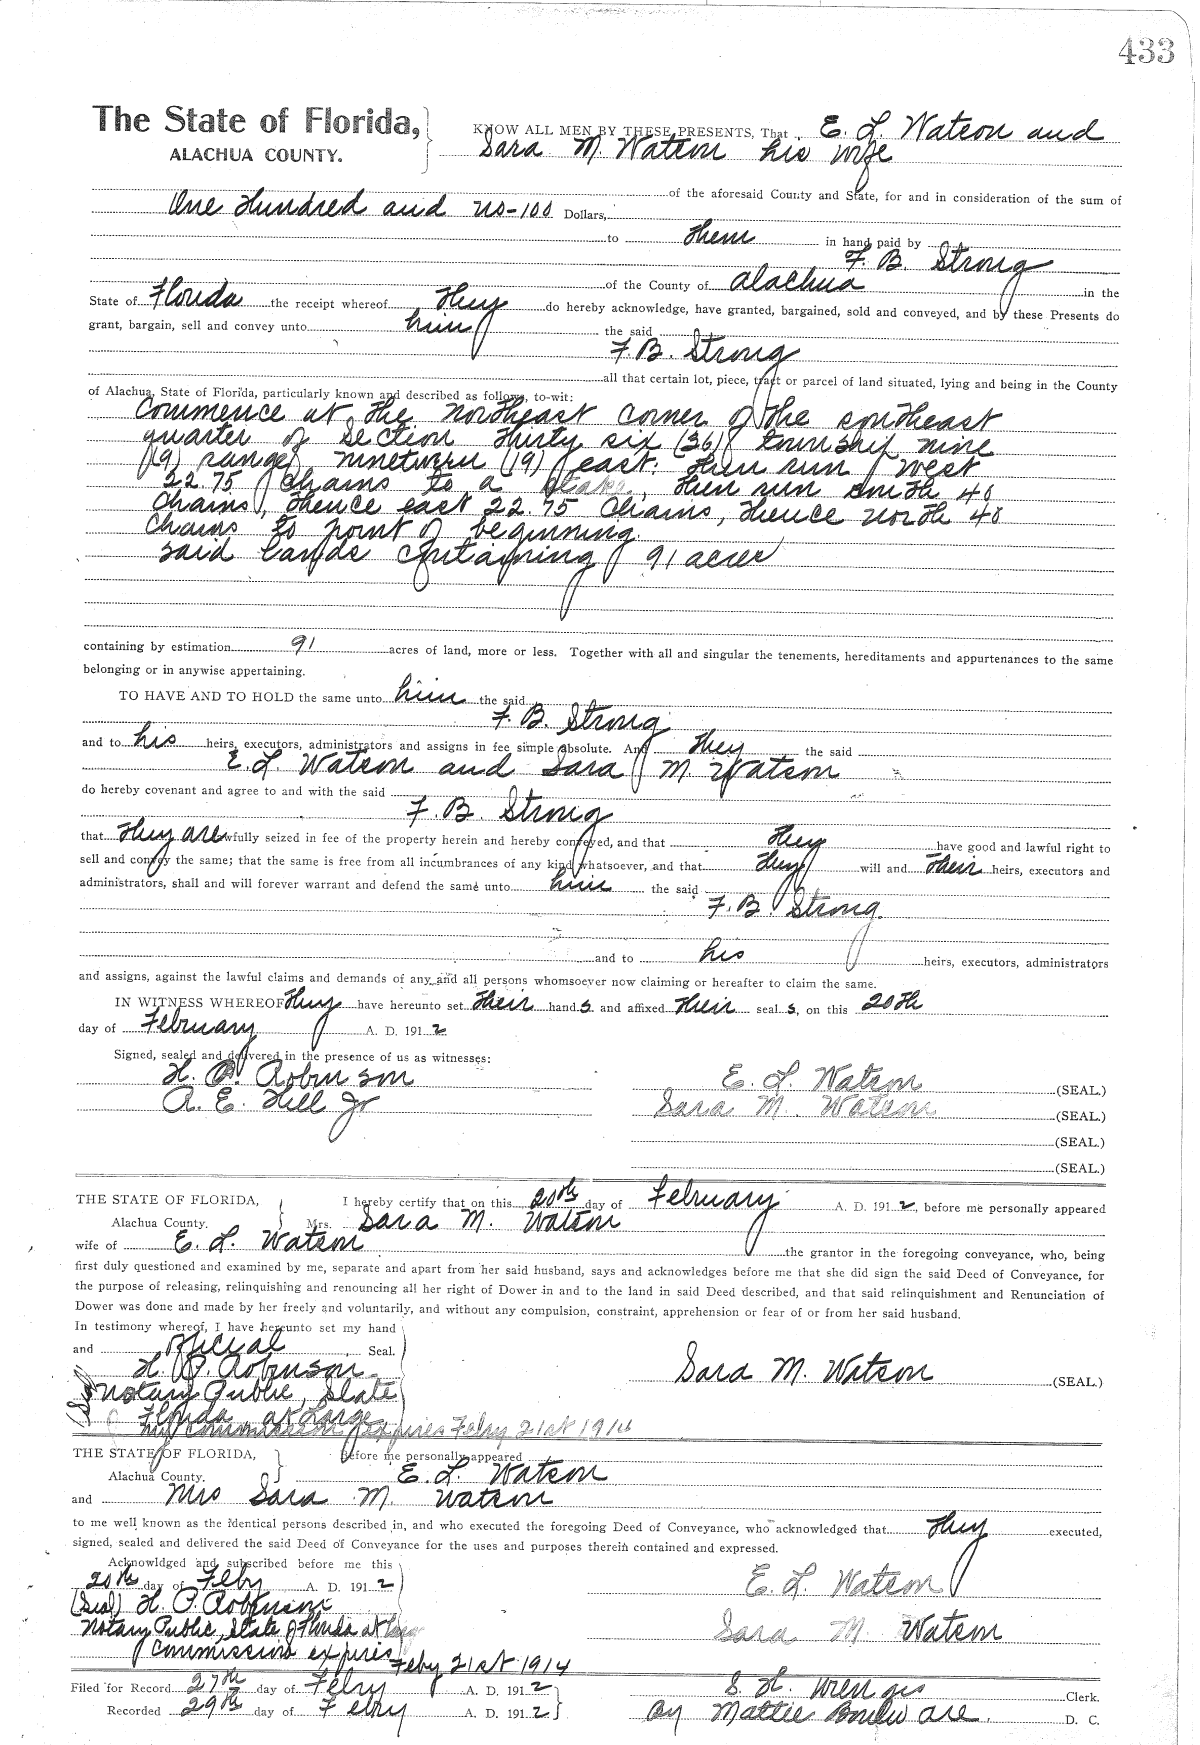 433
The State of Florida,
ALACHUA COUNTY.
KNOW ALL MEN BY THESE PRESENTS, That E. L. Watson and
Sara M. Watson his wife
of the aforesaid County and State, for and in consideration of the sum of
One Hundred and no-100 Dollars,
to them in hand paid by
F. B. Strong
of the County of Alachua in the
State of Florida the receipt whereof they do hereby acknowledge, have granted, bargained, sold and conveyed, and by these Presents do
grant, bargain, sell and convey unto him the said
F. B. Strong
all that certain lot, piece, tract or parcel of land situated, lying and being in the County
of Alachua, State of Florida, particularly known and described as follows, to-wit:
Commence at the northeast corner of the southeast
quarter of Section thirty six (36) township nine
(9) range nineteen (19) east. then run west
22.75 chains to a stake, then run south 40
chains, thence east 22.75 chains, thence north 40
chains to point of beginning.
said lands containing 91 acres
containing by estimation 91 acres of land, more or less. Together with all and singular the tenements, hereditaments and appurtenances to the same
belonging or in anywise appertaining.
TO HAVE AND TO HOLD the same unto him the said
F. B. Strong
and to his heirs, executors, administrators and assigns in fee simple absolute. And they the said
E. L. Watson and Sara M. Watson
do hereby covenant and agree to and with the said
F. B. Strong
that they are lawfully seized in fee of the property herein and hereby conveyed, and that they have good and lawful right to
sell and convey the same; that the same is free from all incumbrances of any kind whatsoever, and that they will and their heirs, executors and
administrators, shall and will forever warrant and defend the same unto him the said
F. B. Strong.
and to his heirs, executors, administrators
and assigns, against the lawful claims and demands of any and all persons whomsoever now claiming or hereafter to claim the same.
IN WITNESS WHEREOF they have hereunto set their hand s and affixed their seal s, on this 20th
day of February A. D. 1912
Signed, sealed and delivered in the presence of us as witnesses:
H. P. Robinson
A. E. Hill Jr
E. L. Watson (SEAL.)
Sara M. Watson (SEAL.)
(SEAL.)
(SEAL.)
THE STATE OF FLORIDA,
Alachua County.
I hereby certify that on this 20th day of February A. D. 1912, before me personally appeared
Mrs. Sara M. Watson
wife of E. L. Watson the grantor in the foregoing conveyance, who, being
first duly questioned and examined by me, separate and apart from her said husband, says and acknowledges before me that she did sign the said Deed of Conveyance, for
the purpose of releasing, relinquishing and renouncing all her right of Dower in and to the land in said Deed described, and that said relinquishment and Renunciation of
Dower was done and made by her freely and voluntarily, and without any compulsion, constraint, apprehension or fear of or from her said husband.
In testimony whereof, I have hereunto set my hand
and official Seal.
H. P. Robinson
(Seal) Notary Public, State
Florida, at Large
my commission expires Feby 21st 1914
Sara M. Watson (SEAL.)
THE STATE OF FLORIDA,
Alachua County.
Before me personally appeared
E. L. Watson
and Mrs Sara M. Watson
to me well known as the identical persons described in, and who executed the foregoing Deed of Conveyance, who acknowledged that they executed,
signed, sealed and delivered the said Deed of Conveyance for the uses and purposes therein contained and expressed.
Acknowldged and subscribed before me this
20th day of Feby A. D. 1912
(Seal) H. P. Robinson
Notary Public, State of Florida at Large
Commission expires Feby 21st 1914
E. L. Watson
Sara M. Watson
Filed for Record 27th day of Febry A. D. 1912
Recorded 29th day of Febry A. D. 1912
S. H. Wienges Clerk.
By Mattie Bouleware. D. C.